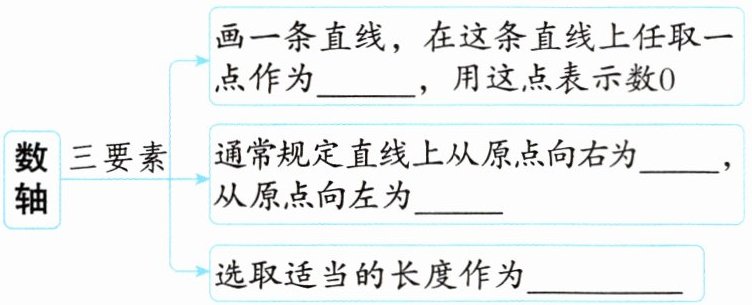 数轴
三要素
画一条直线，在这条直线上任取一
点作为______，用这点表示数0
通常规定直线上从原点向右为_____，
从原点向左为______
选取适当的长度作为__________